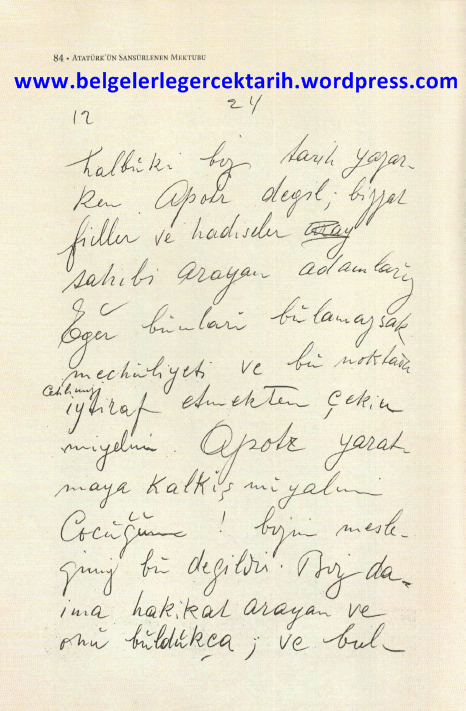 84 • ATATÜRK'ÜN SANSÜRLENEN MEKTUBU
www.belgelerlegercektarih.wordpress.com
12 24
halbuki biz, tarih yazar-
ken Apotr değil; bizzat
fiiller ve hadiseler aray
sahibi arayan adamlarız
Eğer bunları bulamazsak,
mechuliyeti ve bu noktada
cehlimizi
iytiraf etmekten çekin
miyelim. Apotr yarat-
maya kalkışmıyalım
Çocuğum! bizim mesle-
ğimiz bu değildir. Biz da-
ima hakikat arayan ve
onu buldukça; ve bul-